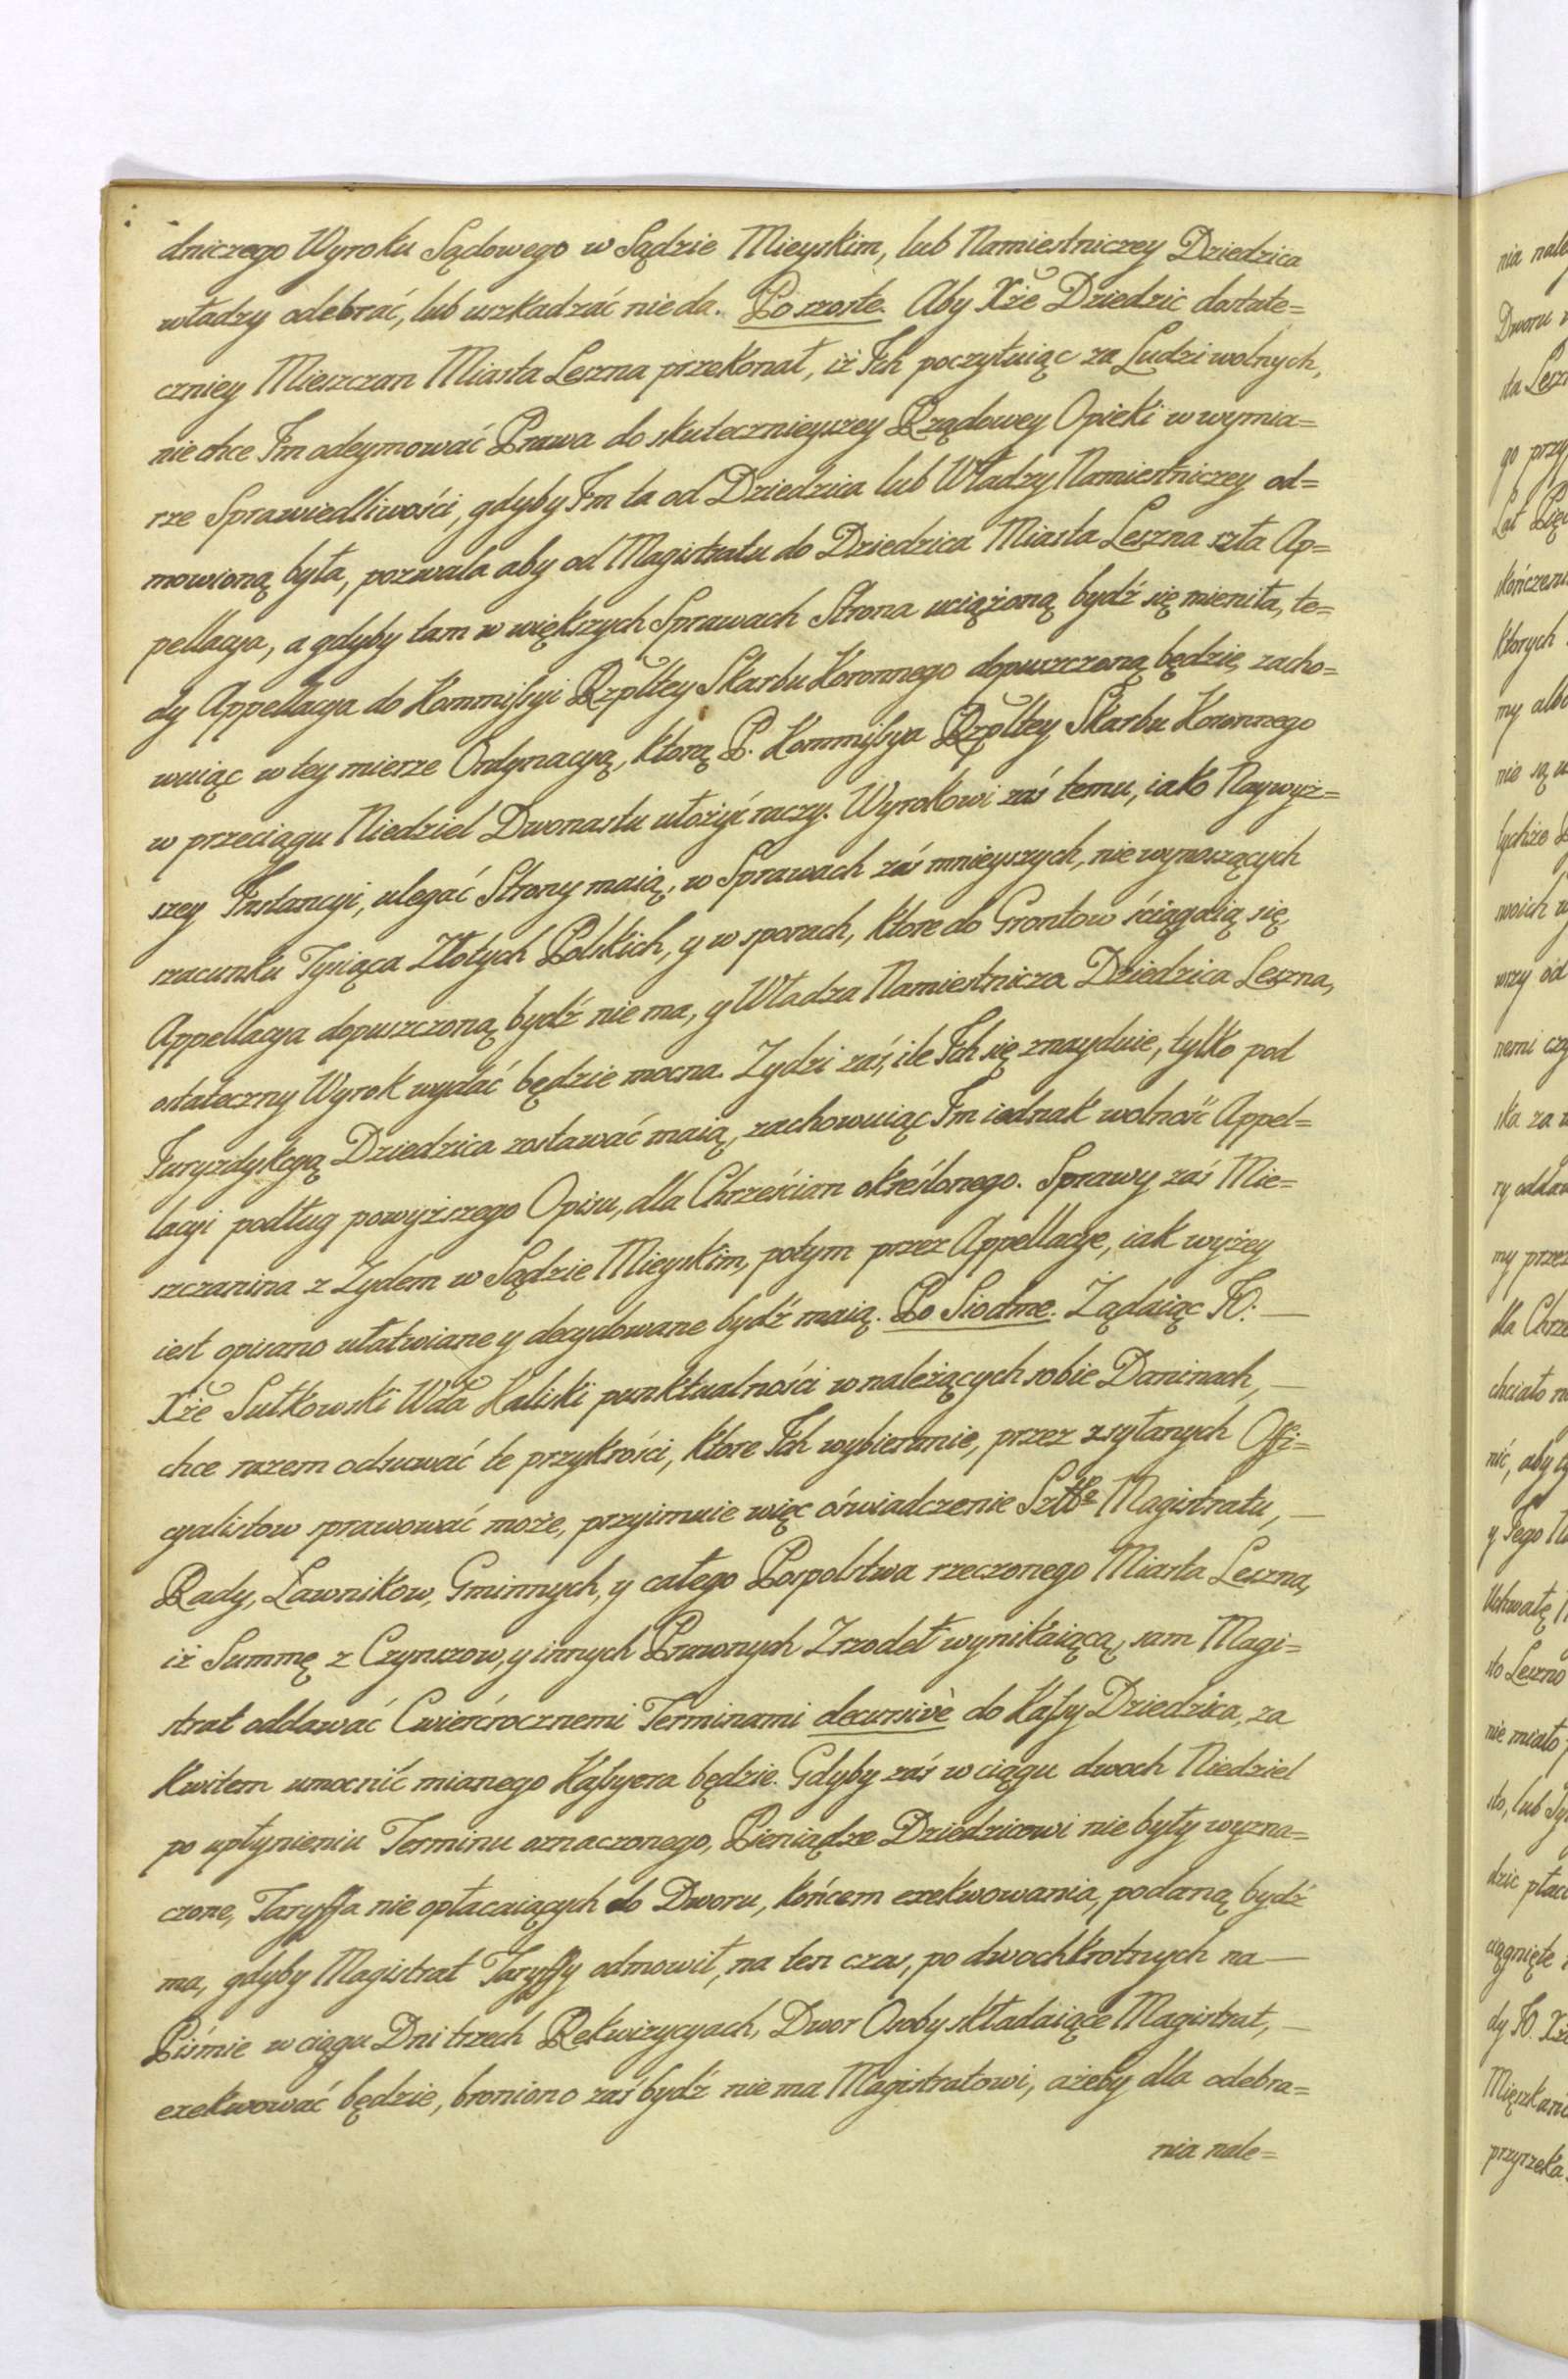 dniczego Wyroku Sądowego w Sądzie Mieyskim, lub Namiestniczey Dziedzica
władzy odebrać, lub uszkadzać nie da. Po szoste. Aby Xże Dziedzic dostate=
czniey Mieszczan Miasta Leszna przekonał, iż Ich poczytuiąc za Ludzi wolnych,
nie chce Im odeymować Prawa do skutecznieyszey Rządowey Opieki w wymia=
rze Sprawiedliwości, gdyby Im ta od Dziedzica lub Władzy Namiestniczey od=
mowioną była, pozwala aby od Magistratu do Dziedzica Miasta Leszna szła Ap=
pellacya, a gdyby tam w większych Sprawach Strona uciążoną bydź się mieniła, te=
dy Appellacya do Kommissyi Rzpltey Skarbu Koronnego dopuszczoną będzie, zacho=
wuiąc w tey mierze Ordynacyą, którą P. Kommissya Rzpltey Skarbu Koronnego
w przeciągu Niedziel Dwonastu ułożyć raczy. Wyrokowi zaś temu, iako Naywyż=
szey Instancyi, ulegać Strony maią, w Sprawach zaś mnieyszych, nie wynoszących
szacunku Tysiąca Złotych Polskich, y w sporach, ktore do Grontow ściągaią się,
Appellacya dopuszczoną bydź nie ma, y Władza Namiestnicza Dziedzica Leszna,
ostateczny Wyrok wydać będzie mocna. Zydzi zaś, ile Ich się znayduie, tylko pod
Juryzdykcyą Dziedzica zostawać maią, zachowuiąc Im iednak wolność Appel=
lacyi podług powyższego Opisu, dla Chrześcian określonego. Sprawy zaś Mie=
szczanina z Zydem w Sądzie Mieyskim, potym przez Appellacye, iak wyżey
iest opisano ułatwiane y decydowane bydź maią. Po Siodme. Żądaiąc JO. —
Xże Sułkowski Wda Kaliski punktualności w należących sobie Daninach, —
chce razem odsuwać te przykrości, ktore Ich wybieranie, przez zsyłanych Offi=
cyalistow sprawować może, przyimuie więc oświadczenie Szltt° Magistratu, —
Rady, Ławnikow, Gminnych, y całego Pospolstwa rzeczonego Miasta Leszna,
iż Summę z Czynszow, y innych Prawnych Zrzodeł wynikaiącą, sam Magi=
strat oddawać Cwierćrocznemi Terminami decursivè do Kassy Dziedzica, za
Kwitem umocnić mianego Kassyera będzie. Gdyby zaś w ciągu dwoch Niedziel
po upłynieniu Terminu oznaczonego, Pieniądze Dziedzicowi nie były wyzna=
czone, Taryffa nie opłacaiących do Dworu, końcem exekwowania, podaną bydź
ma, gdyby Magistrat Taryffy odmowił, na ten czas, po dwochkrotnych na —
Piśmie w ciągu Dni trzech Rekwizycyach, Dwor Osoby składaiące Magistrat, —
exekwować będzie, broniono zaś bydź nie ma Magistratowi, ażeby dla odebra=
nia nale=